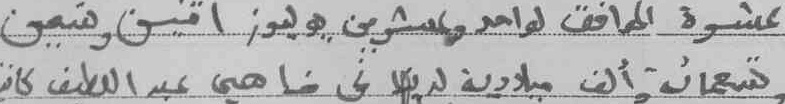 عشرة الموافق لواحد وعشرين يوليوز اثنين وتسعين
وتسعمائة وألف ميلادية لدينا نحن ضا هي عبد اللطيف كاتب